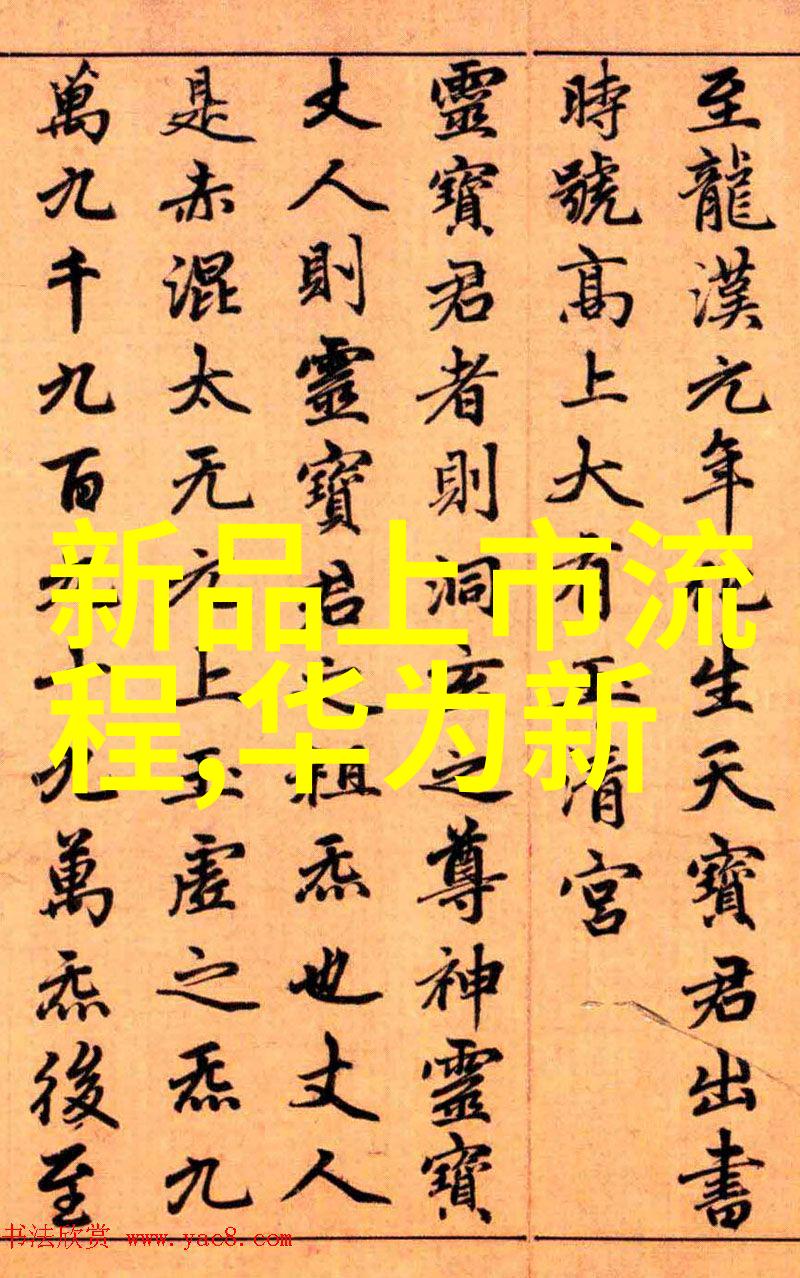 至龍漢元年化生天寶君出書
時號高上大有玉清宮
靈寶君者則洞玄之尊神靈寶
丈人則靈寶君之祖炁也丈人
是赤混太无上玉虛之炁九
萬九千九百九十九萬炁後至
新品上市流
程,华为新
书法欣赏 www.yac8.com